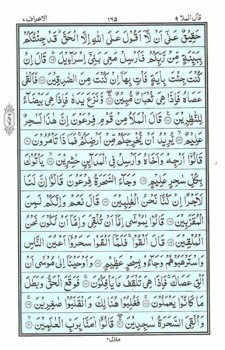 قال الملا ٩ ١٢٥ الاعراف ٧
حَقِيقٌ عَلَىٰٓ أَن لَّآ أَقُولَ عَلَى اللّٰهِ إِلَّا الْحَقَّ ۚ قَدْ جِئْتُكُم
بِبَيِّنَةٍ مِّن رَّبِّكُمْ فَأَرْسِلْ مَعِيَ بَنِيٓ إِسْرَآءِيلَ ۝ قَالَ إِن
كُنتَ جِئْتَ بِـَٔايَةٍ فَأْتِ بِهَآ إِن كُنتَ مِنَ الصّٰدِقِينَ ۝ فَأَلْقَىٰ
عَصَاهُ فَإِذَا هِيَ ثُعْبَانٌ مُّبِينٌ ۝ وَنَزَعَ يَدَهُ فَإِذَا هِيَ بَيْضَآءُ
لِلنّٰظِرِينَ ۝ قَالَ الْمَلَأُ مِن قَوْمِ فِرْعَوْنَ إِنَّ هٰذَا لَسٰحِرٌ
عَلِيمٌ ۝ يُرِيدُ أَن يُخْرِجَكُم مِّنْ أَرْضِكُمْ ۖ فَمَاذَا تَأْمُرُونَ ۝
قَالُوٓا أَرْجِهْ وَأَخَاهُ وَأَرْسِلْ فِي الْمَدَآئِنِ حٰشِرِينَ ۝ يَأْتُوكَ
بِكُلِّ سٰحِرٍ عَلِيمٍ ۝ وَجَآءَ السَّحَرَةُ فِرْعَوْنَ قَالُوٓا إِنَّ لَنَا
لَأَجْرًا إِن كُنَّا نَحْنُ الْغٰلِبِينَ ۝ قَالَ نَعَمْ وَإِنَّكُمْ لَمِنَ
الْمُقَرَّبِينَ ۝ قَالُوا يٰمُوسَىٰٓ إِمَّآ أَن تُلْقِيَ وَإِمَّآ أَن نَّكُونَ نَحْنُ
الْمُلْقِينَ ۝ قَالَ أَلْقُوا ۖ فَلَمَّآ أَلْقَوْا سَحَرُوٓا أَعْيُنَ النَّاسِ
وَاسْتَرْهَبُوهُمْ وَجَآءُو بِسِحْرٍ عَظِيمٍ ۝ وَأَوْحَيْنَآ إِلَىٰ مُوسَىٰٓ أَنْ
أَلْقِ عَصَاكَ ۖ فَإِذَا هِيَ تَلْقَفُ مَا يَأْفِكُونَ ۝ فَوَقَعَ الْحَقُّ وَبَطَلَ
مَا كَانُوا يَعْمَلُونَ ۝ فَغُلِبُوا هُنَالِكَ وَانقَلَبُوا صٰغِرِينَ ۝
وَأُلْقِيَ السَّحَرَةُ سٰجِدِينَ ۝ قَالُوٓا ءَامَنَّا بِرَبِّ الْعٰلَمِينَ ۝